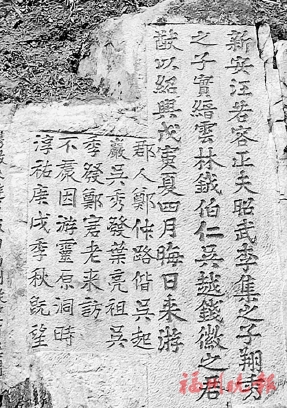 新安汪若容正夫昭武李集之子翔
之子實縉雲林鉞伯仁吳越錢徽之君
猷以紹興戊寅夏四月晦日来游
郡人鄭仲路偕吳起
巖吳秀發葉亮祖吳
季發鄭老来訪
不因游靈原洞時
淳祐庚戌季秋旣望
福州晚报